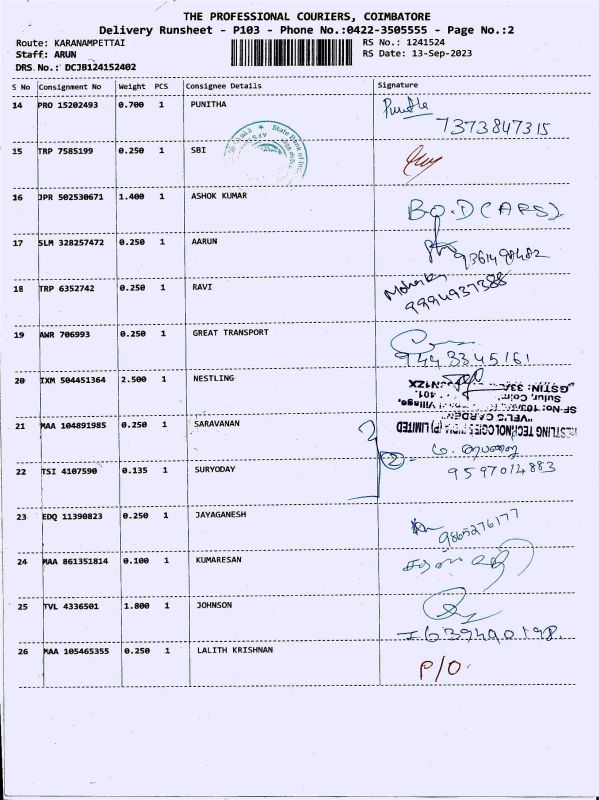 THE PROFESSIONAL COURIERS, COIMBATORE
Delivery Runsheet - P103 - Phone No.:0422-3505555 - Page No.:2
Route: KARANAMPETTAI RS No.: 1241524
Staff: ARUN RS Date: 13-Sep-2023
DRS No.: DCJB124152402
S No Consignment No Weight PCS Consignee Details Signature
14 PRO 15202493 0.700 1 PUNITHA Punitha
7373847315
15 TRP 7585199 0.250 1 SBI
State Bank of
16 JPR 502530671 1.400 1 ASHOK KUMAR
17 SLM 328257472 0.250 1 AARUN
9361498482
18 TRP 6352742 0.250 1 RAVI
9994937388
19 AWR 706993 0.250 1 GREAT TRANSPORT
9443345161
20 IXM 504451364 2.500 1 NESTLING
GSTIN: 33A
Sulur, Coim
401.
Village,
SF No: 103
"VEL'S GARDEN"
NESTLING TECHNOLOGIES INDIA (P) LIMITED
21 MAA 104891985 0.250 1 SARAVANAN
22 TSI 4107590 0.135 1 SURYODAY 2
9597012883
23 EDQ 11390823 0.250 1 JAYAGANESH
9865276177
24 MAA 861351814 0.100 1 KUMARESAN
25 TVL 4336501 1.800 1 JOHNSON
26 MAA 105465355 0.250 1 LALITH KRISHNAN P/O